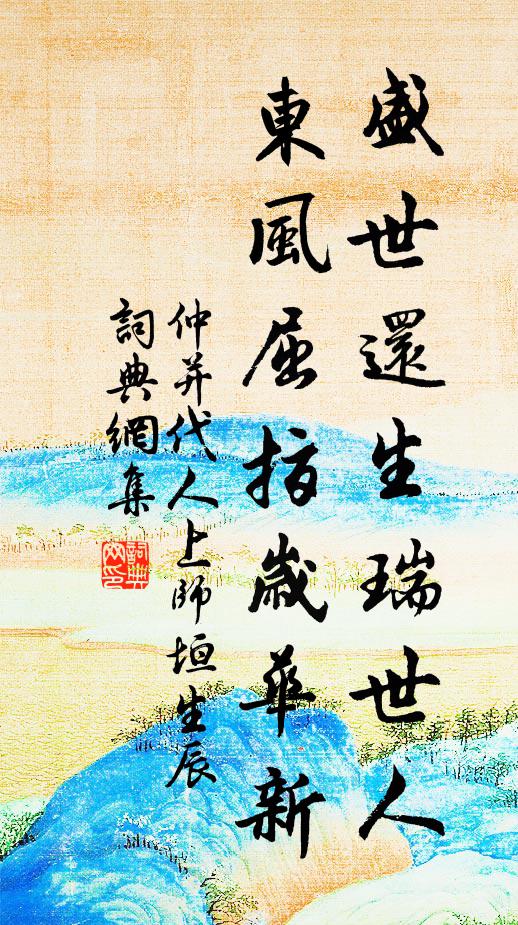 盛世還生瑞世人
東風屈指歲華新
仲并代人上師垣生辰
詞典網集
詞典網印